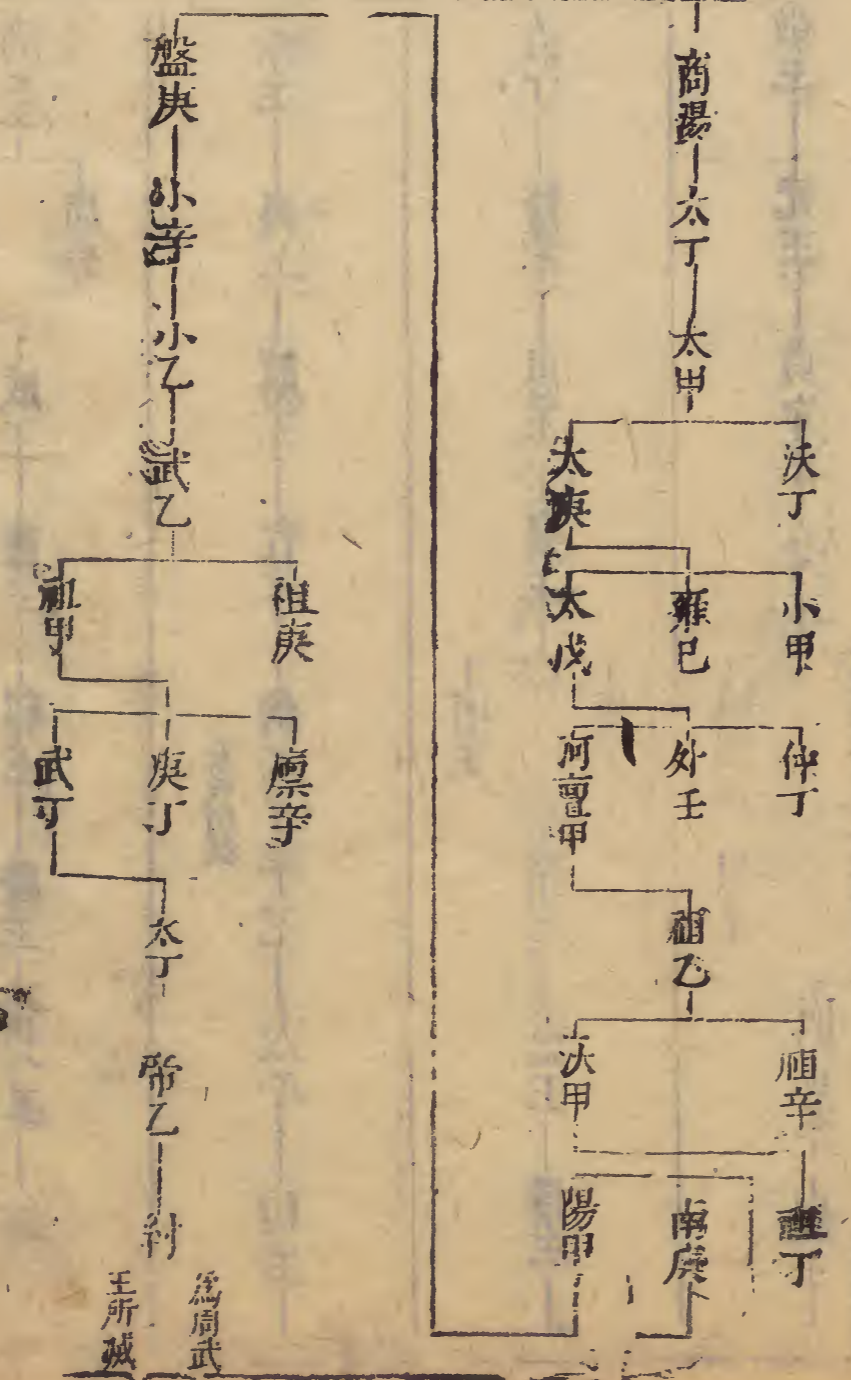 商湯
太丁
太甲
沃丁
太庚
小甲
雍巳
太戊
仲丁
外壬
河亶甲
祖乙
祖辛
沃甲
祖丁
南庚
陽甲
盤庚
小辛
小乙
武乙
祖庚
祖甲
廪辛
庚丁
武丁
太丁
帝乙
紂
為周武
王所滅